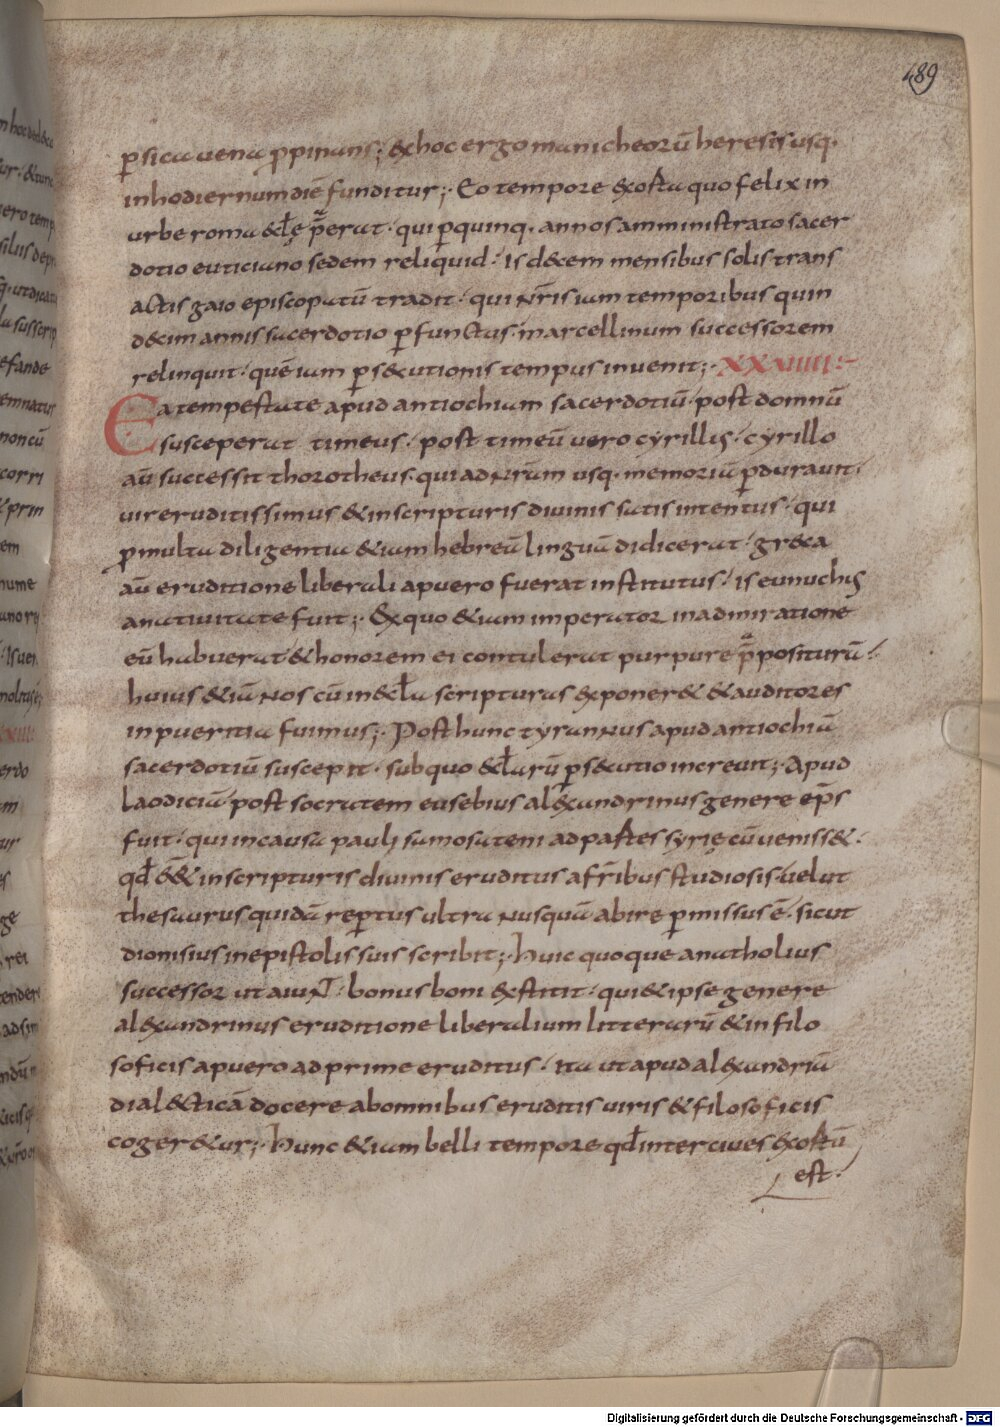 489
ꝑsica uena ꝓpinans; & hoc ergo manicheorū heresis usq·
in hodiernum diē funditur; Eo tempore exorta quo felix in
urbe roma eccl̄ę p̄erat· qui ꝑ quinq· annos amministrato sacer
dotio euticiano sedem reliquid· Is decem mensibus solis trans
actis gaio episcopatū tradit· qui nr̄is iam temporibus quin
decim annis sacerdotio ꝑfunctus· marcellinum successorem
relinquit· quē iam ꝑsecutionis tempus inuenit; XXXIIII·
Ea tempestate apud antiochiam sacerdotiū· post domnū
susceperat timeus· post timeū uero cyrillis· cyrillo
aū successit thorotheus· qui ad nr̄am usq· memoriā ꝑdurauit·
uir eruditissimus & in scripturis diuinis satis intentus· qui
ꝑ multa diligentia & iam hebreā linguā didicerat· greca
aū eruditione liberali a puero fuerat institutus· Is eunuchis
a natiuitate fuit; Ex quo & iam imperator in admiratione
eū habuerat & honorem ei contulerat purpure p̄positurā·
huius & iā nos cū in eccl̄a scripturas exponeret & auditores
in pueritia fuimus; Post hunc tyrannus apud antiochiā
sacerdotiū suscepit· sub quo eccl̄arū ꝑsecutio increuit; Apud
laodiciā post socratem eusebius alexandrinus genere ep̄s
fuit· qui in causa pauli samosateni ad partes syrię cū uenisset·
in scripturis diuinis eruditus a fr̄ibus studiosis uelut
thesaurus quidā reꝑtus ultra nusquā abire ꝑmissus ē· sicut
dionisius in epistolis suis scribit; Huic quoque anatholius
successor ut aiunt· bonus boni extitit· qui & ipse genere
alexandrinus eruditione liberalium litterarū & in filo
soficis a puero ad prime eruditus· ita ut apud alexandriā
dialecticā docere ab omnibus eruditis uiris & filosoficis
cogeretur; Hunc & iam belli tempore qd̄ inter ciues exortū
est·
Digitalisierung gefördert durch die Deutsche Forschungsgemeinschaft - DFG